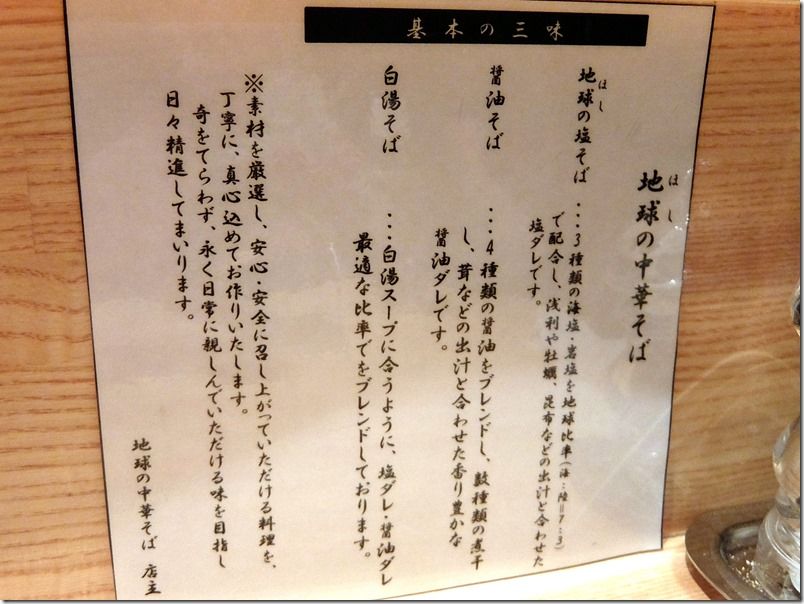 基本の三味
地球の中華そば
ほし
地球の塩そば
ほし
・・・3種類の海塩・岩塩を地球比率(海:陸=7:3)
で配合し、浅利や牡蠣、昆布などの出汁と合わせた
塩ダレです。
醤油そば
・・・4種類の醤油をブレンドし、数種類の煮干
し、茸などの出汁と合わせた香り豊かな
醤油ダレです。
白湯そば
・・・白湯スープに合うように、塩ダレ・醤油ダレ
最適な比率でをブレンドしております。
※素材を厳選し、安心・安全に召し上がっていただける料理を、
丁寧に、真心込めてお作りいたします。
奇をてらわず、永く日常に親しんでいただける味を目指し
日々精進してまいります。
地球の中華そば 店主